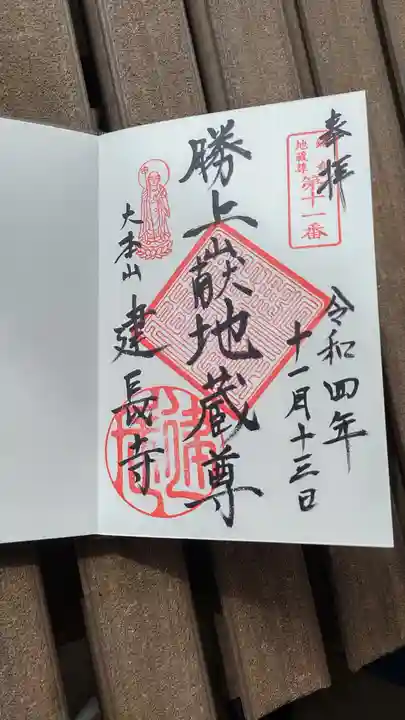 奉拝
地蔵尊
第十一番
令和四年
十一月十三日
勝上山献地蔵尊
大本山
建長寺